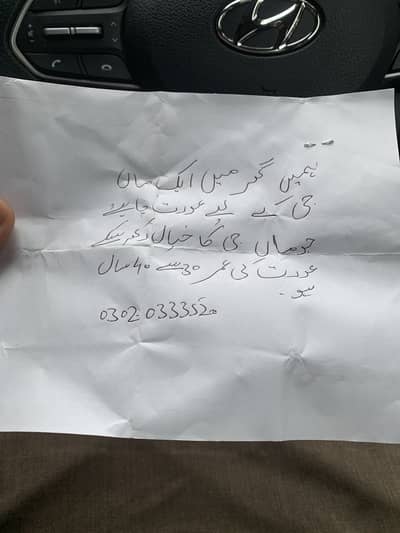 ہمیں گھر میں ایک ماں
جی کے لیے عورت چاہیے
جو ماں جی کا خیال رکھ سکے
عورت کی عمر 30 سے 40 سال
ہو
0302.0333520